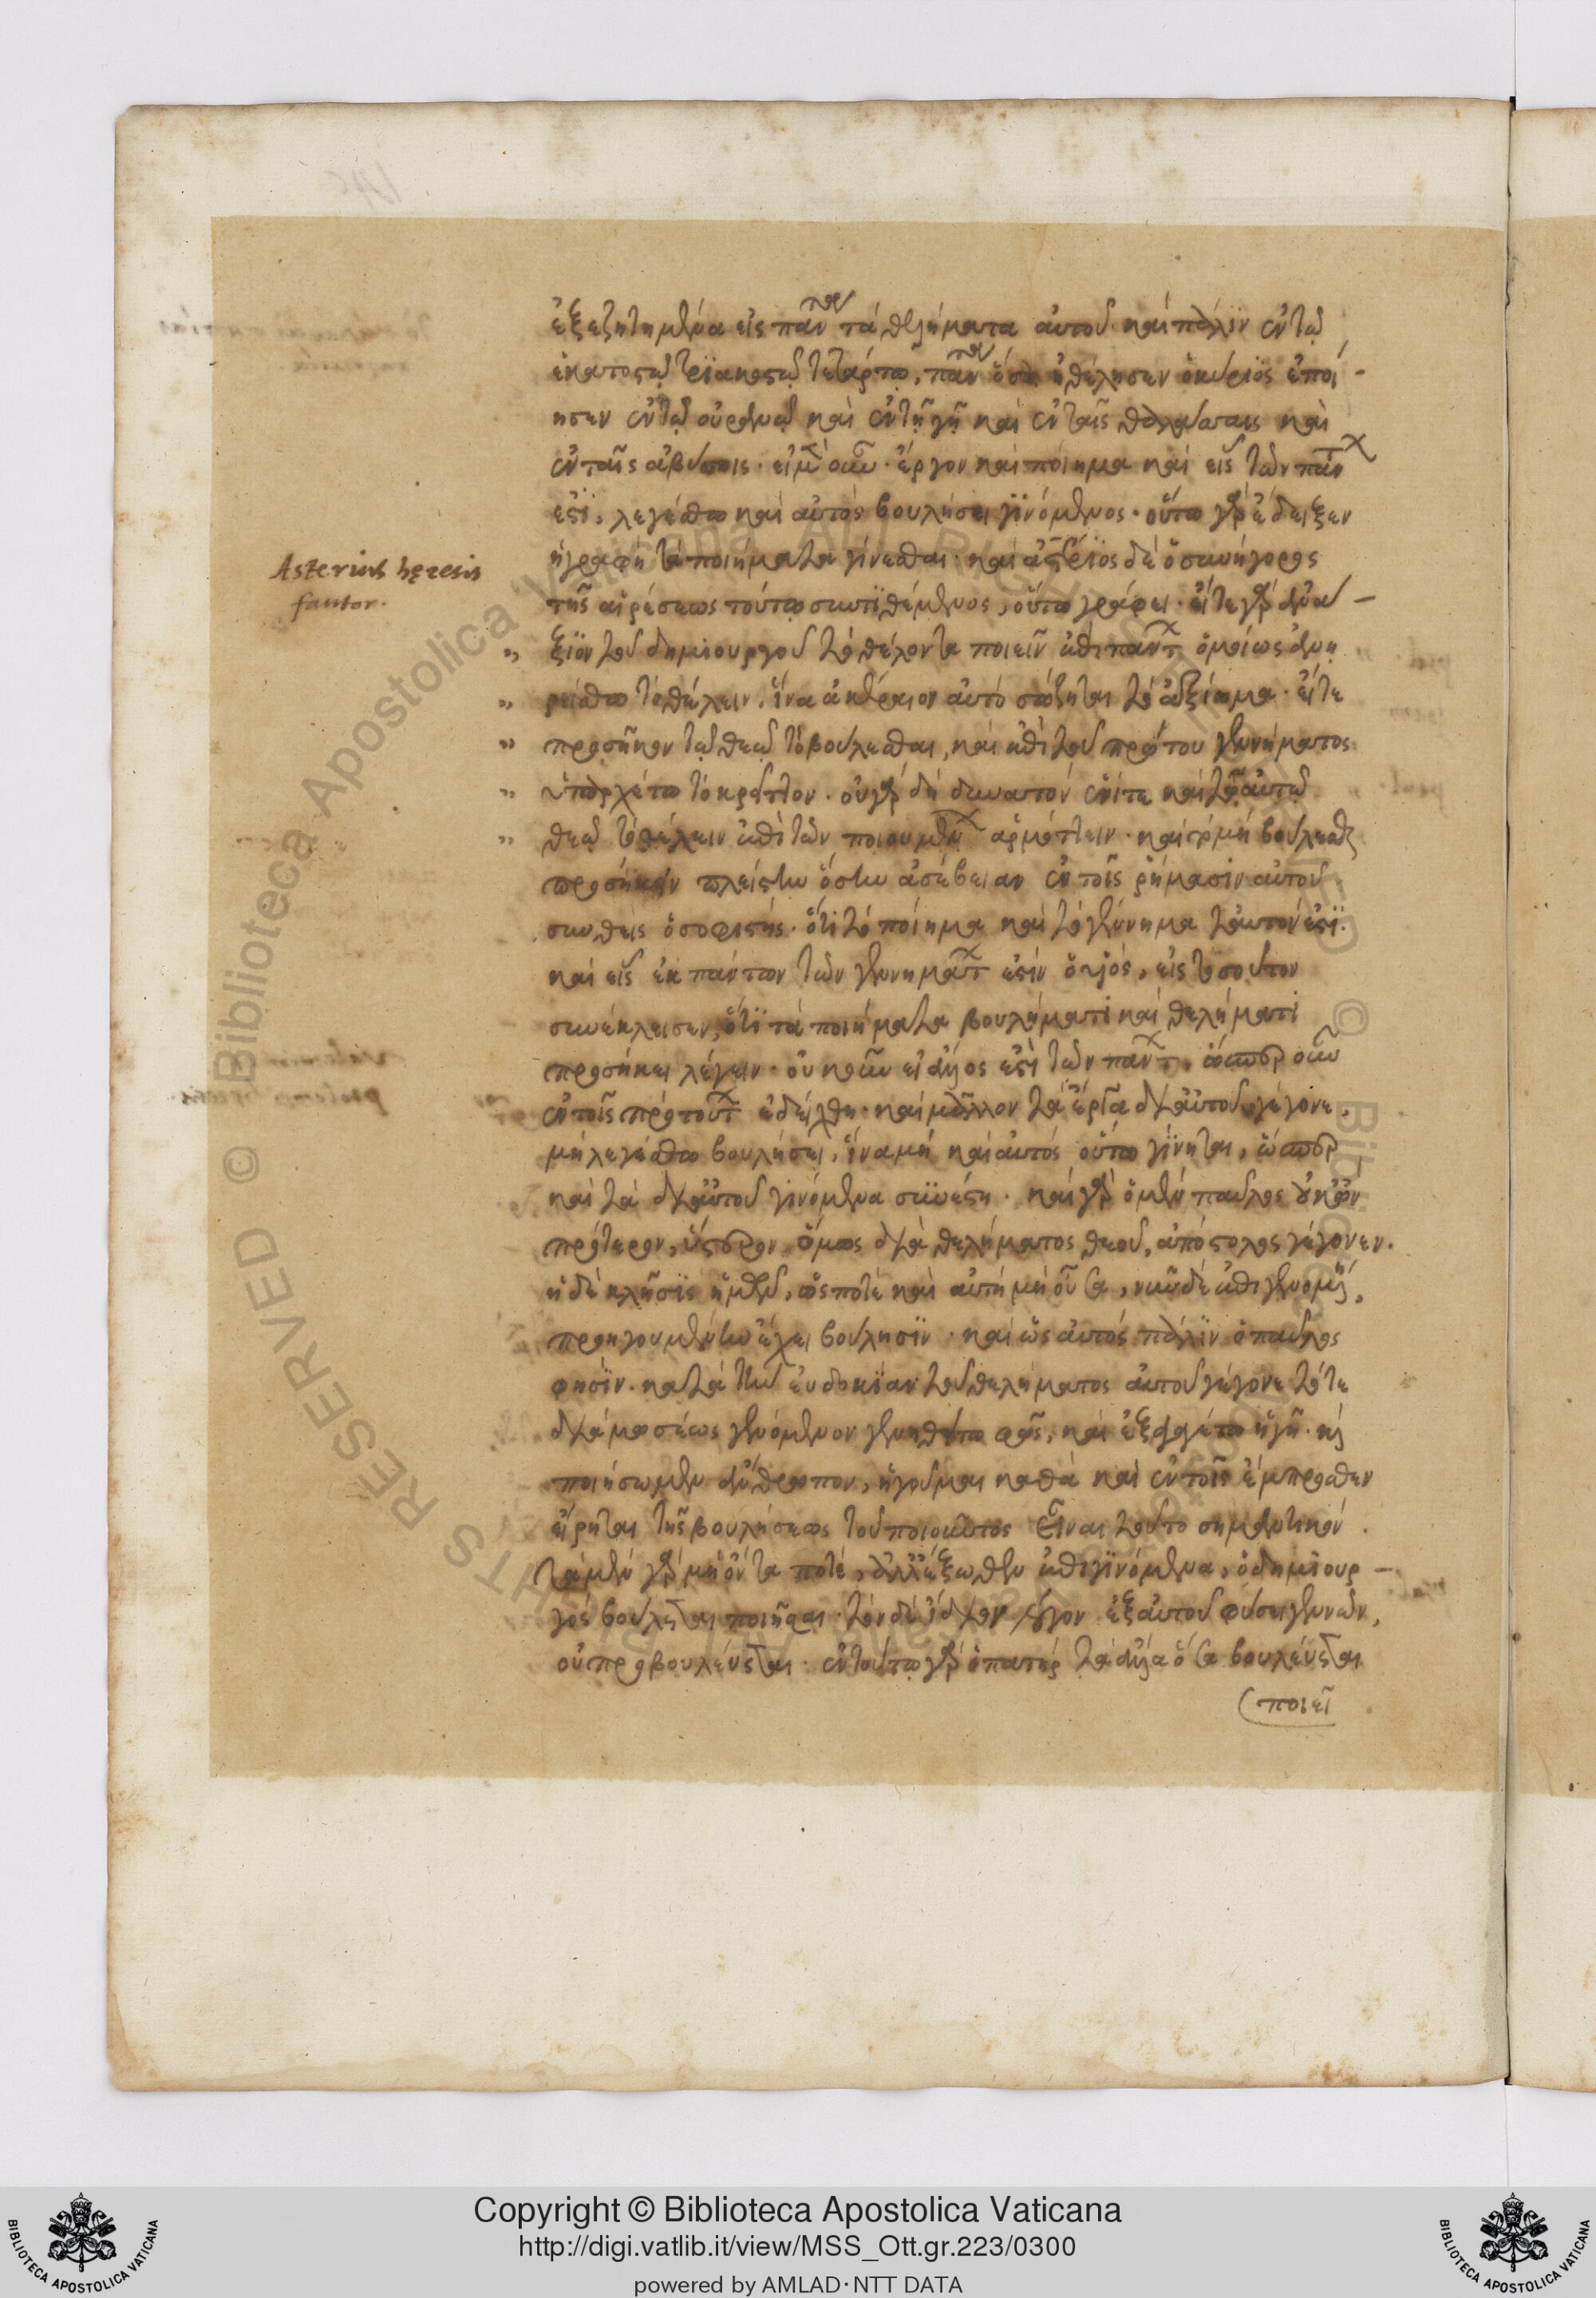 ἐξεζητημένα εἰς πάντα τὰ θελήματα αὐτοῦ· καὶ πάλιν ἐν τῷ
ἑκατοστῷ τριακοστῷ τετάρτῳ, πάντα ὅσα ἠθέλησεν ὁ κύριος ἐποί-
ησεν ἐν τῷ οὐρανῷ καὶ ἐν τῇ γῇ καὶ ἐν ταῖς θαλάσσαις καὶ
ἐν ταῖς ἀβύσσοις· εἰ μὲν οὖν ἔργον καὶ ποίημα καὶ εἷς τῶν πάντων
ἐστὶ, λεγέσθω καὶ αὐτὸς βουλήσει γινόμενος· οὕτω γὰρ ἔδειξεν
ἡ γραφὴ τὰ ποιήματα γίνεσθαι· καὶ ἀστέριος δὲ ὁ συνήγορος
Asterius hęresis
fautor.
τῆς αἱρέσεως τούτῳ συντιθέμενος, οὕτω γράφει· εἴτε γὰρ ἀνά-
ξιον τοῦ δημιουργοῦ τὸ θέλοντα ποιεῖν ἐπὶ πάντων ὁμοίως ἀνῃ
ρείσθω τὸ θέλειν, ἵνα ἀκέραιον αὐτὸ σώζηται τὸ ἀξίωμα· εἴτε
προσῆκον τῷ θεῷ τὸ βούλεσθαι, καὶ ἐπὶ τοῦ πρώτου γεννήματος
ὑπαρχέτω τὸ κρεῖττον· οὐ γὰρ δὴ δυνατὸν ἑνί τε καὶ τῷ αὐτῷ
θεῷ τὸ θέλειν ἐπὶ τῶν ποιουμένων ἁρμόττειν· καὶ τὸ μὴ βούλεσθαι
προσήκειν πλείστην ὅσην ἀσέβειαν ἐν τοῖς ῥήμασιν αὐτοῦ
συνθεὶς ὁ σοφιστής· ὅτι τὸ ποίημα καὶ τὸ γέννημα ταυτόν ἐστι·
καὶ εἷς ἐκ πάντων τῶν γεννημάτων ἐστὶν ὁ υἱός, εἰς τοσοῦτον
συνέκλεισεν, ὅτι τὰ ποιήματα βουλήματι καὶ θελήματι
προσήκει λέγειν· οὐκοῦν εἰ ἄλλος ἐστὶ τῶν πάντων, ὥσπερ οὖν
ἐν τοῖς πρὸ τούτων ἐδείχθη· καὶ μᾶλλον τὰ ἔργα δι' αὐτοῦ γέγονε,
μὴ λεγέσθω βουλήσει, ἵνα μὴ καὶ αὐτὸς οὕτω γίνηται, ὥσπερ
καὶ τὰ δι' αὐτοῦ γινόμενα συνέστη· καὶ γὰρ ὁ μὲν παῦλος οὐκ ὢν
πρότερον, ὕστερον ὅμως διὰ θελήματος θεοῦ, ἀπόστολος γέγονεν.
ἡ δὲ κλῆσις ἡμῶν, ὥς ποτὲ καὶ αὐτὴ μὴ οὖσα, νῦν δὲ ἐπιγενομένη,
προηγουμένην ἔχει βούλησιν· καὶ ὡς αὐτὸς πάλιν ὁ παῦλος
φησὶν· κατὰ τὴν εὐδοκίαν τοῦ θελήματος αὐτοῦ γέγονε τό τε
διὰ μωσέως γενόμενον γενηθήτω φῶς, καὶ ἐξαγαγέτω ἡ γῆ· καὶ
ποιήσωμεν ἄνθρωπον, ἡγοῦμαι καθὰ καὶ ἐν τοῖς ἔμπροσθεν
εἴρηται τῆς βουλήσεως τοῦ ποιοῦντος εἶναι τοῦτο σημαντικόν.
τὰ μὲν γὰρ μὴ ὄντα ποτὲ, ἀλλ' ἔξωθεν ἐπιγινόμενα, ὁ δημιουρ-
γὸς βουλεύεται ποιῆσαι· τὸν δὲ ἴδιον λόγον ἐξ αὐτοῦ φύσει γεννῶν,
οὐ προβουλεύεται· ἐν τούτῳ γὰρ ὁ πατὴρ τὰ ἄλλα ὅσα βουλεύεται
ποιεῖ
Copyright © Biblioteca Apostolica Vaticana
http://digi.vatlib.it/view/MSS_Ott.gr.223/0300
powered by AMLAD·NTT DATA
BIBLIOTECA APOSTOLICA VATICANA
BIBLIOTECA APOSTOLICA VATICANA